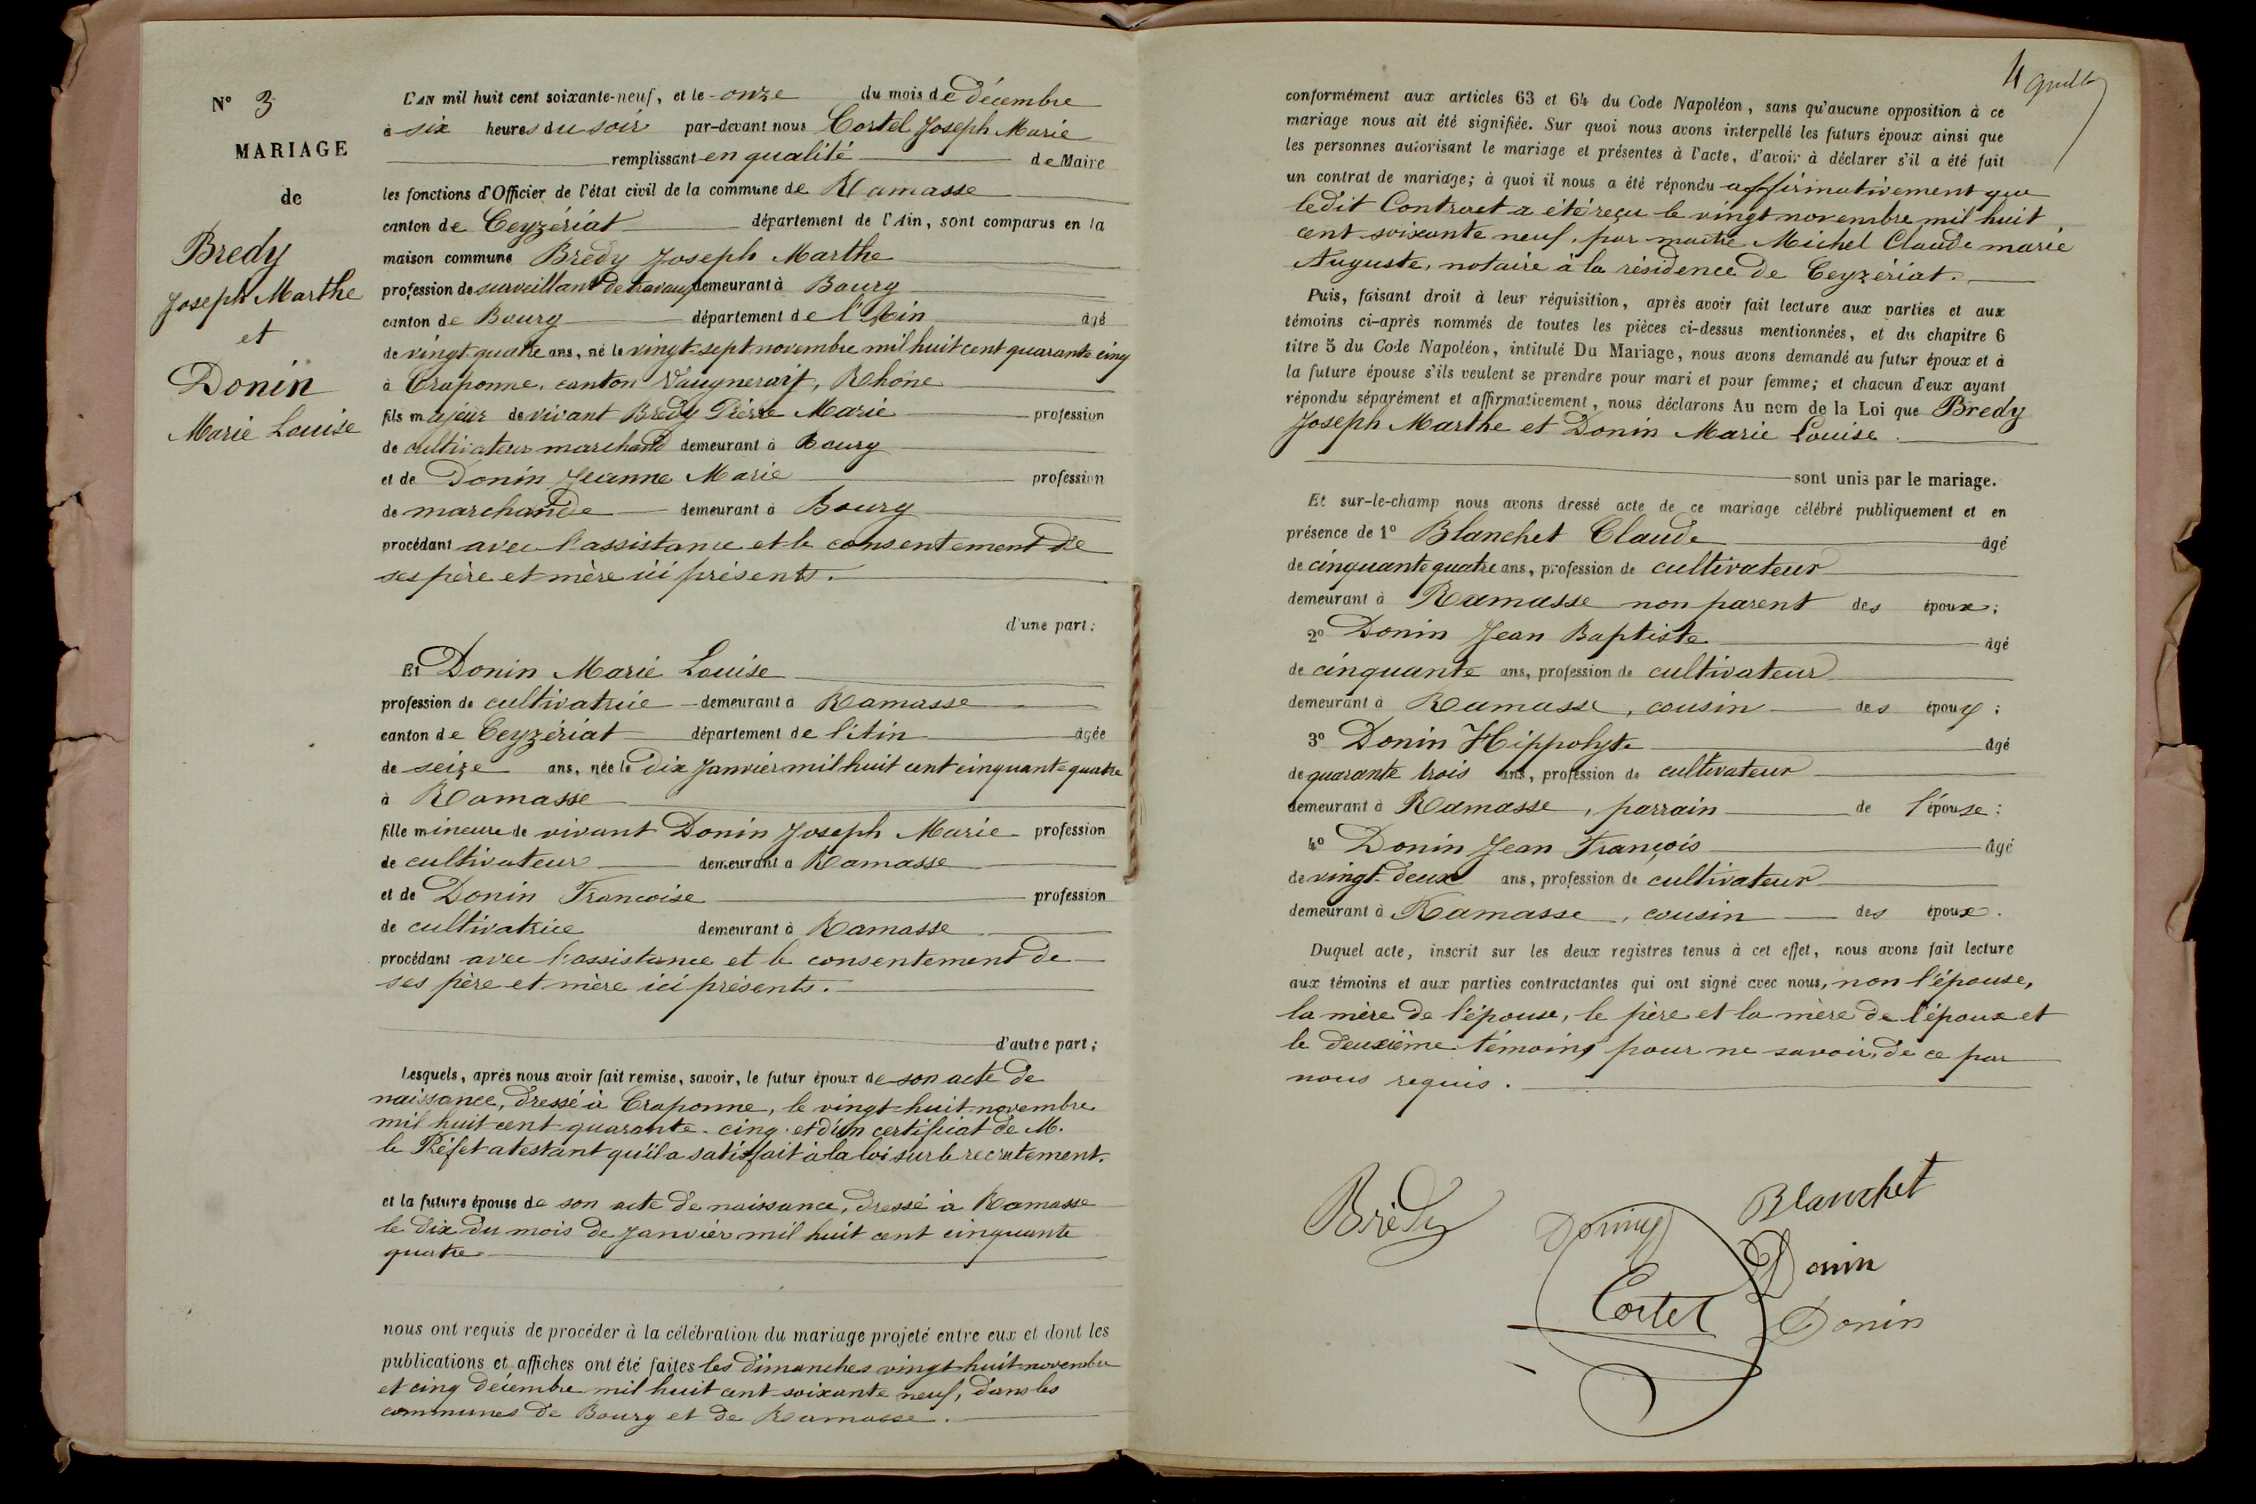 N° 3
MARIAGE
de
Bredy
Joseph Marthe
et
Donin
Marie Louise
L'AN mil huit cent soixante-neuf, et le onze du mois de décembre
à six heures du soir par-devant nous Cortel Joseph Marie
remplissant en qualité de Maire
les fonctions d'Officier de l'état civil de la commune de Ramasse
canton de Ceyzériat département de l'Ain, sont comparus en la
maison commune Bredy Joseph Marthe
profession de surveillant de travaux demeurant à Bourg
canton de Bourg département de l'Ain âgé
de vingt-quatre ans, né le vingt-sept novembre mil huit cent quarante cinq
à Craponne, canton Vaugneray, Rhône
fils majeur de vivant Bredy Pierre Marie profession
de cultivateur marchand demeurant à Bourg
et de Donin Jeanne Marie profession
de marchande demeurant à Bourg
procédant avec l'assistance et le consentement de
ses père et mère ici présents.
d'une part;
Et Donin Marie Louise
profession de cultivatrice demeurant à Ramasse
canton de Ceyzériat département de l'Ain âgée
de seize ans, née le dix Janvier mil huit cent cinquante quatre
à Ramasse
fille mineure de vivant Donin Joseph Marie profession
de cultivateur demeurant à Ramasse
et de Donin Francoise profession
de cultivatrice demeurant à Ramasse
procédant avec l'assistance et le consentement de
ses père et mère ici présents.
d'autre part;
Lesquels, après nous avoir fait remise, savoir, le futur époux de son acte de
naissance, dressé à Craponne, le vingt-huit novembre
mil huit cent quarante-cinq et d'un certificat de M.
le Préfet atestant qu'il a satisfait à la loi sur le recrutement.
et la future épouse de son acte de naissance, dressé à Ramasse
le dix du mois de Janvier mil huit cent cinquante
quatre
nous ont requis de procéder à la célébration du mariage projeté entre eux et dont les
publications et affiches ont été faites les dimanches vingt-huit novembre
et cinq décembre mil huit cent soixante neuf, dans les
communes de Bourg et de Ramasse.
4
conformément aux articles 63 et 64 du Code Napoléon, sans qu'aucune opposition à ce
mariage nous ait été signifiée. Sur quoi nous avons interpellé les futurs époux ainsi que
les personnes autorisant le mariage et présentes à l'acte, d'avoir à déclarer s'il a été fait
un contrat de mariage; à quoi il nous a été répondu affirmativement que
ledit Contract a été reçu le vingt novembre mil huit
cent soixante neuf, par maître Michel Claude marie
Auguste, notaire à la résidence de Ceyzériat.
Puis, faisant droit à leur réquisition, après avoir fait lecture aux parties et aux
témoins ci-après nommés de toutes les pièces ci-dessus mentionnées, et du chapitre 6
titre 5 du Code Napoléon, intitulé Du Mariage, nous avons demandé au futur époux et à
la future épouse s'ils veulent se prendre pour mari et pour femme; et chacun d'eux ayant
répondu séparément et affirmativement, nous déclarons Au nom de la Loi que Bredy
Joseph Marthe et Donin Marie Louise.
sont unis par le mariage.
Et sur-le-champ nous avons dressé acte de ce mariage célébré publiquement et en
présence de 1° Blanchet Claude âgé
de cinquante quatre ans, profession de cultivateur
demeurant à Ramasse non parent des époux;
2° Donin Jean Baptiste âgé
de cinquante ans, profession de cultivateur
demeurant à Ramasse, cousin des époux;
3° Donin Hippolyte âgé
de quarante trois ans, profession de cultivateur
demeurant à Ramasse, parrain de l'épouse;
4° Donin Jean François âgé
de vingt-deux ans, profession de cultivateur
demeurant à Ramasse, cousin des époux.
Duquel acte, inscrit sur les deux registres tenus à cet effet, nous avons fait lecture
aux témoins et aux parties contractantes qui ont signé avec nous, non l'épouse,
la mère de l'épouse, le père et la mère de l'époux et
le deuxième témoins pour ne savoir, de ce par
nous requis.
Brédy
Donin
Blanchet
Donin
Cortel
Donin